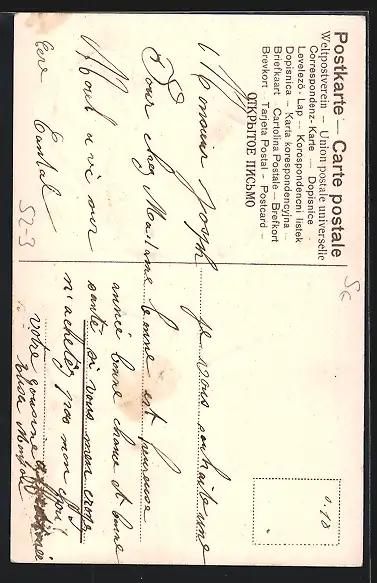 Postkarte — Carte postale
Weltpostverein — Union postale universelle
Correspondenz-Karte — Dopisnice
Levelező-Lap — Korespondencni listek
Dopisnica — Karta korespondencyjna —
Briefkaart — Cartolina Postale — Brefkort
Brevkort — Tarjeta Postal — Postcard —
ОТКРЫТОЕ ПИСЬМО
Monsieur Joseph
Pour chez Madame
sur
Cantal
523
56
0.10
je vous souhaite une
bonne et heureuse
année bonne chance et bonne
santé si vous men croyez
n'achetez pas mon
votre cousine